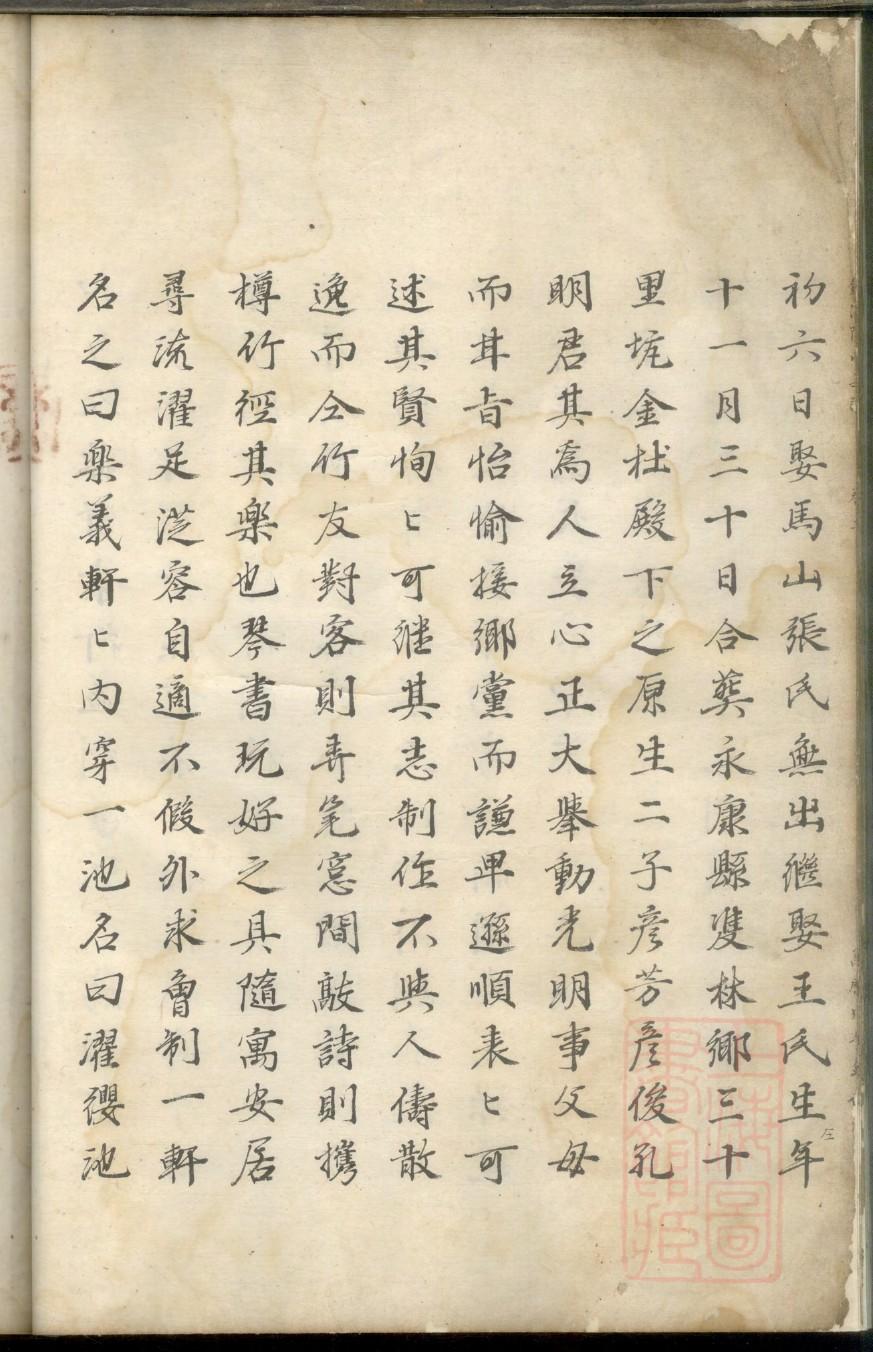 初六日娶馬山張氏無出繼娶王氏生年
十一月三十日合葬永康縣雙林鄉三十
里坑金杜殿下之原生二子彥芳彥俊孔
明君其爲人立心正大舉動光明事父母
而甘旨怡愉接鄉黨而謙卑遜順表〻可
述其賢恂〻可継其志制作不與人儔散
逸而仝竹友對客則弄笔窓間敲詩則携
樽竹徑其楽也琴書玩好之具隨寓安居
尋流濯足從容自適不假外求會制一軒
名之曰楽義軒〻内穿一池名曰濯纓池